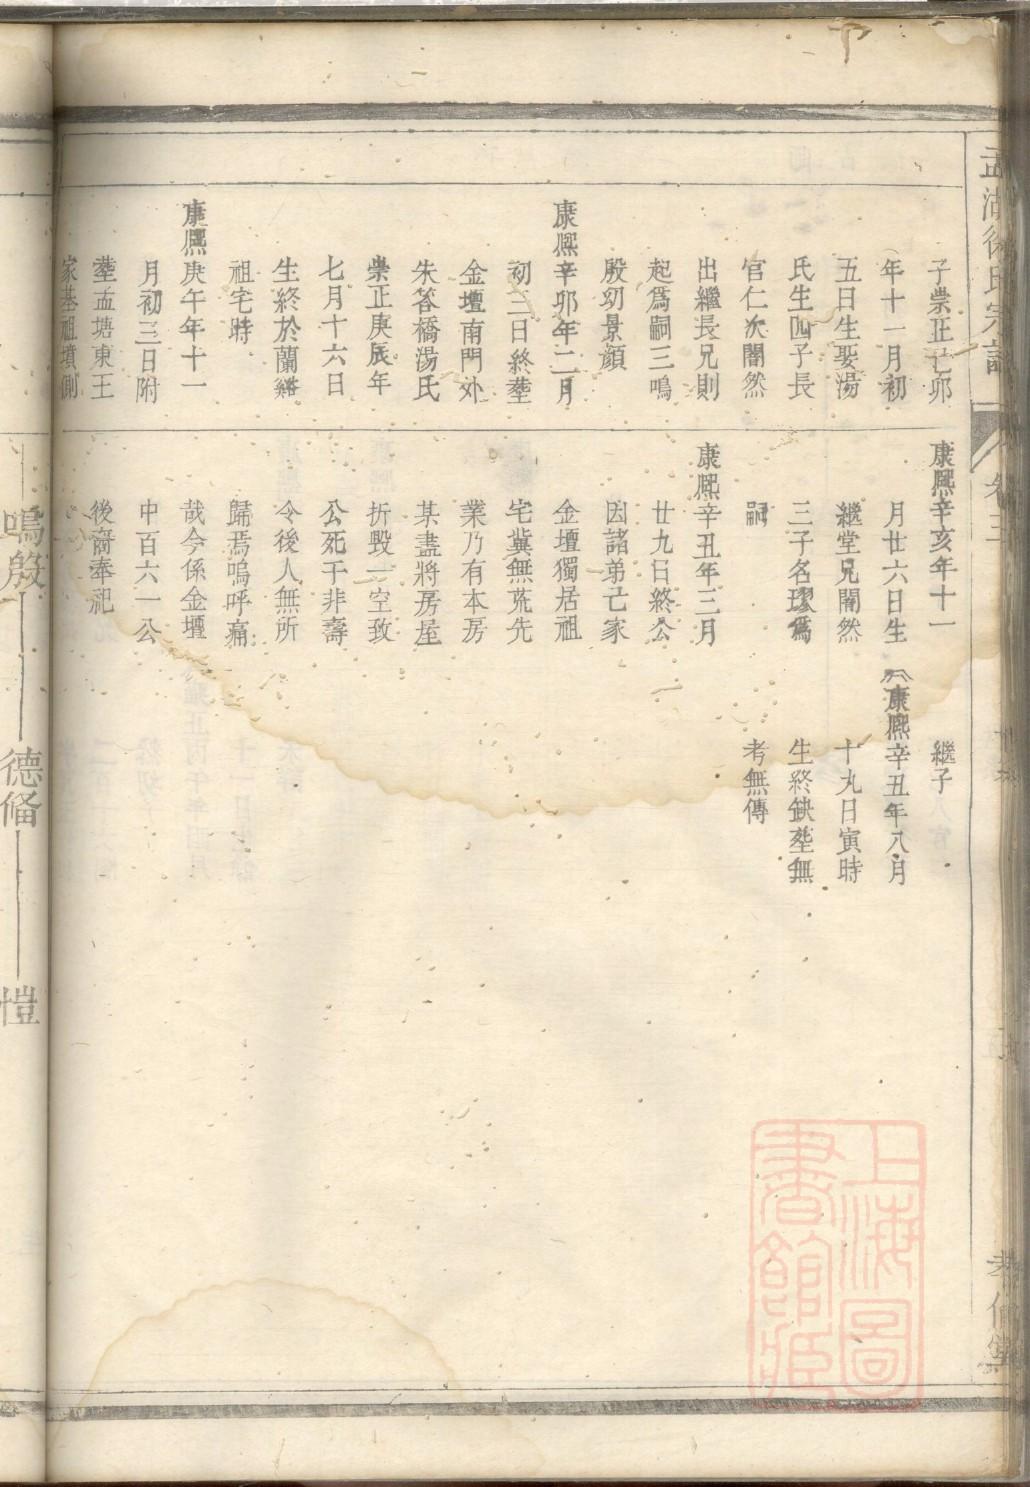 孟湖徐氏宗譜
卷三
子崇正己卯
年十一月初
五日生娶湯
氏生四子長
官仁次闇然
出繼長兄則
起爲嗣三鳴
殷幼景顔
康熙辛卯年二月
初三日終塟
金壇南門外
朱荅橋湯氏
崇正庚辰年
七月十六日
生終於蘭谿
祖宅時
康熙庚午年十一
月初三日附
塟孟塘東王
家基祖墳側
康熙辛亥年十一
月廿六日生
繼堂兄闇然
三子名璆爲
嗣
康熙辛丑年三月
廿九日終公
因諸弟己家
金壇獨居祖
宅冀無荒先
業乃有本房
某盡將房屋
折毀一空致
公死于非壽
令後人無所
歸焉嗚呼痛
哉今係金壇
中百六一公
後裔奉祀
繼子
康熙辛丑年八月
十九日寅時
生終缺塟無
考無傳
鳴殷
德脩
愷
上海圖
書館藏